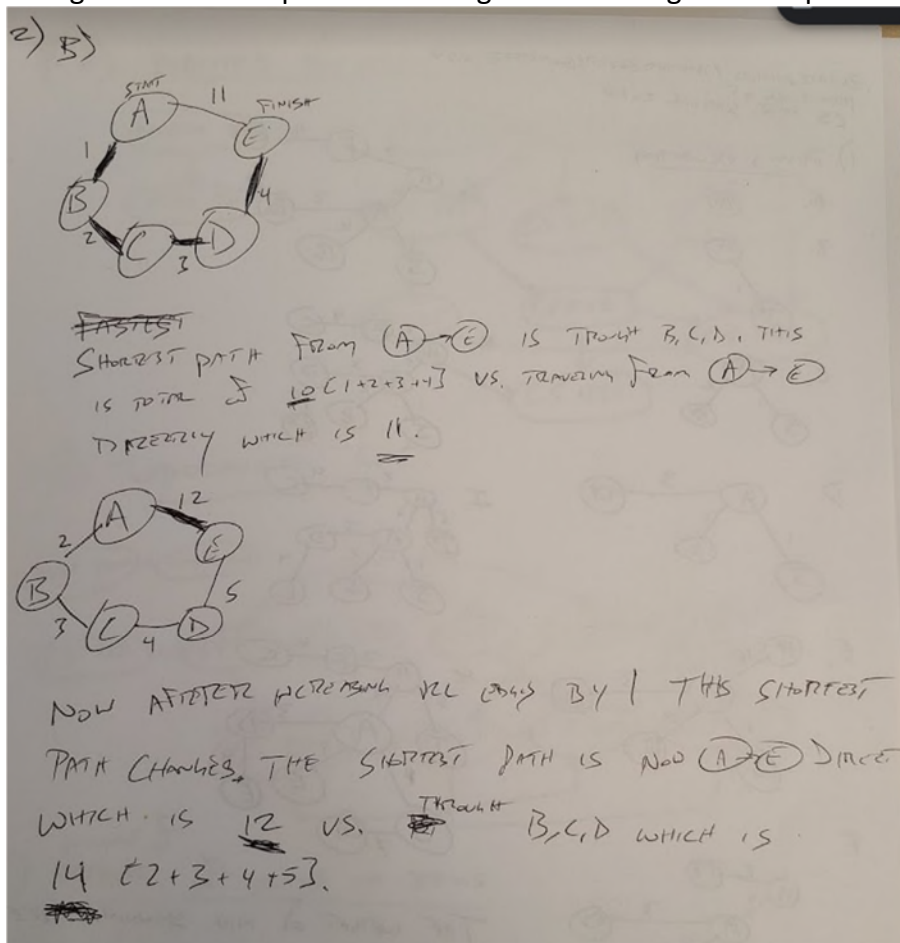 2) B)
START
A
11
FINISH
E
1
B
4
2
C
3
D
FASTEST
SHORTEST PATH FROM A → E IS TROUGH B, C, D, THIS
IS TOTAL OF 10 {1+2+3+4} VS. TRAVELING FROM A → E
DIRECTLY WHICH IS 11.
A
12
2
E
B
5
3
C
4
D
NOW AFTER INCREASING ALL EDGES BY 1 THIS SHORTEST
PATH CHANGES. THE SHORTEST PATH IS NOW A → E DIRECT
WHICH IS 12 VS. THROUGH B, C, D WHICH IS
14 {2+3+4+5}.